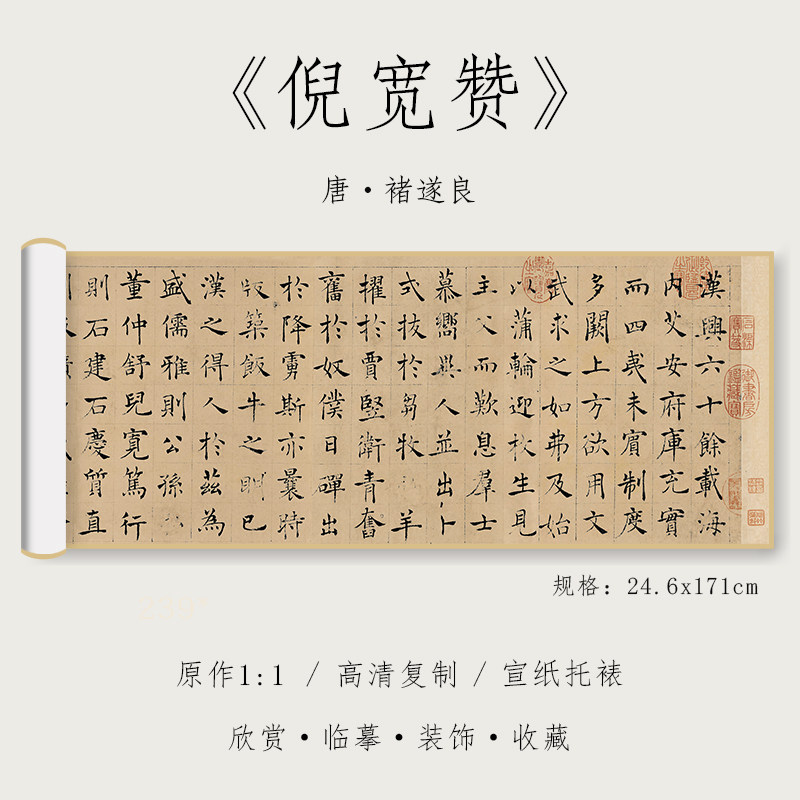 《倪宽赞》
唐·褚遂良
漢興六十餘載海
内艾安府庫充實
而四夷未賓制度
多闕上方欲用文
武求之如弗及始
以蒲輪迎枚生見
主父而歎息羣士
慕嚮異人並出卜
式拔於芻牧羊
擢於賈豎衛青奮
舊於奴僕日磾出
於降虜斯亦曩時
版築飯牛之朙已
漢之得人於茲為
盛儒雅則公孫
董仲舒兒寬篤行
則石建石慶質直
规格：24.6x171cm
原作1:1 / 高清复制 / 宣纸托裱
欣赏·临摹·装饰·收藏